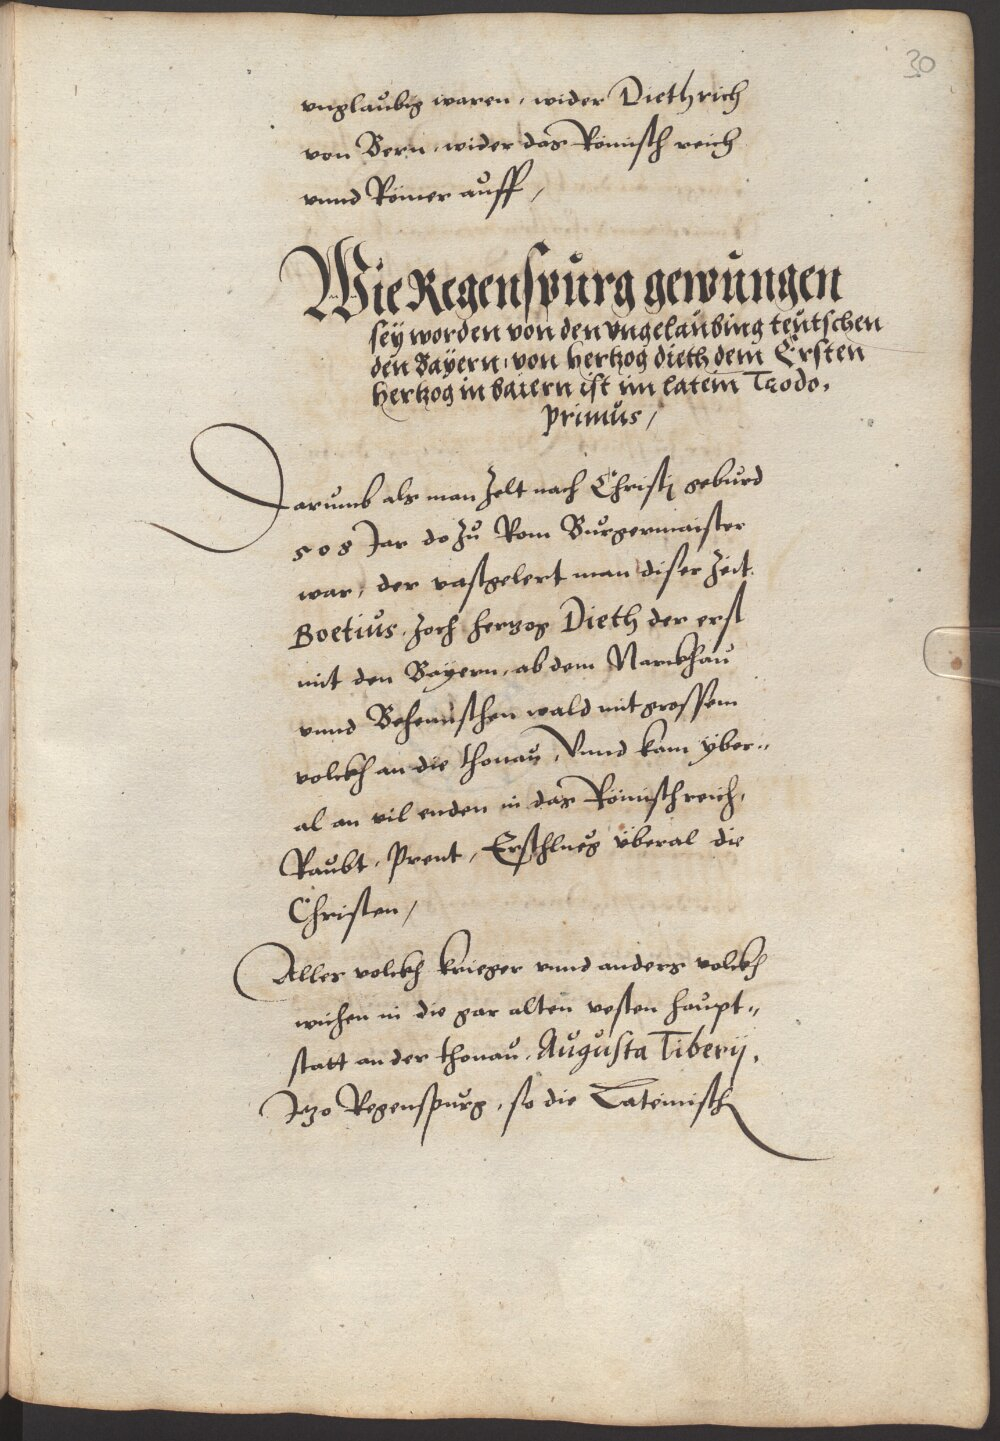 30
vnglaubig waren, wider Diethrich
von Bern, wider das Römisch reich
vnnd Römer auff,
Wie Regenspurg gewungen
sey worden von den vngelaubing teutschen
den Bayern, von hertzog dieth dem Ersten
hertzog in baiern ist im latein Teodo,
primus,
Darumb als man zelt nach Christj geburd
508 Jar do zu Rom Burgermaister
war, der vastgelert man diser Zeit
Boetius. Zoch hertzog Dieth der erst
mit den Bayern, ab dem Narckhau
vnnd Behemischen wald mit grossem
volckh an die thonau, Vnnd kam yber„
al an vil enden in das Römisch reich,
Raubt, Prent, Erschlueg überal die
Christen,
Alles volckh krieger vnnd anders volckh
wichen in die gar alten vesten haupt„
statt an der thonau, Augusta Tiberij,
Jtzo Regenspurg, so die Lateinisch